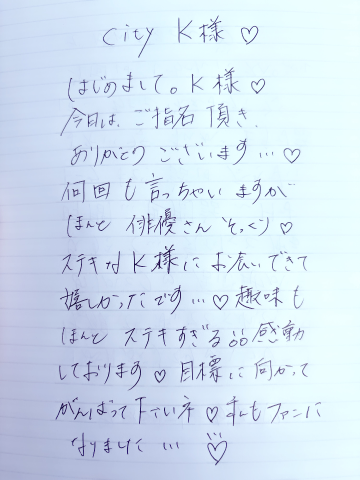 city K様 ♡
はじめまして。K様 ♡
今日は、ご指名 頂き、
ありがとう ございます … ♡
何回も 言っちゃい ますが
ほんと 俳優さん そっくり ♡
ステキな K様に お会いできて
嬉しかったです … ♡ 趣味も
ほんと ステキすぎる 感動
しております ♡ 目標に 向かって
がんばって 下さいネ ♡ 私も ファンに
なりました … ♡